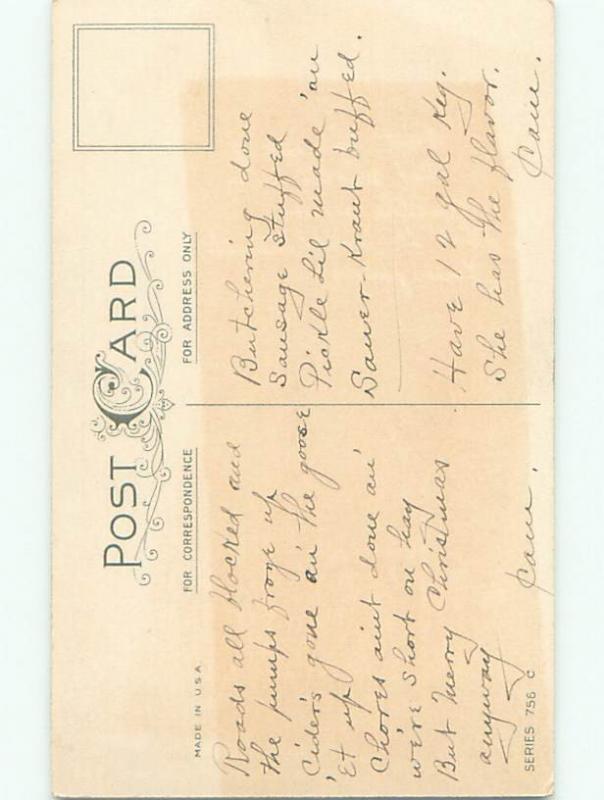 POST CARD
FOR CORRESPONDENCE
FOR ADDRESS ONLY
MADE IN U.S.A.
Roads all blocked and
the pumps froze up
Ciders gone an' the goose
'Et up
Chores aint done an'
we're short on hay
But Merry Christmas
anyway
Butchering done
Sausage stuffed
Pickle Lil made 'an
Sauer-Kraut buffed.
Have 12 gal Keg.
She has the flavor.
SERIES 756 C